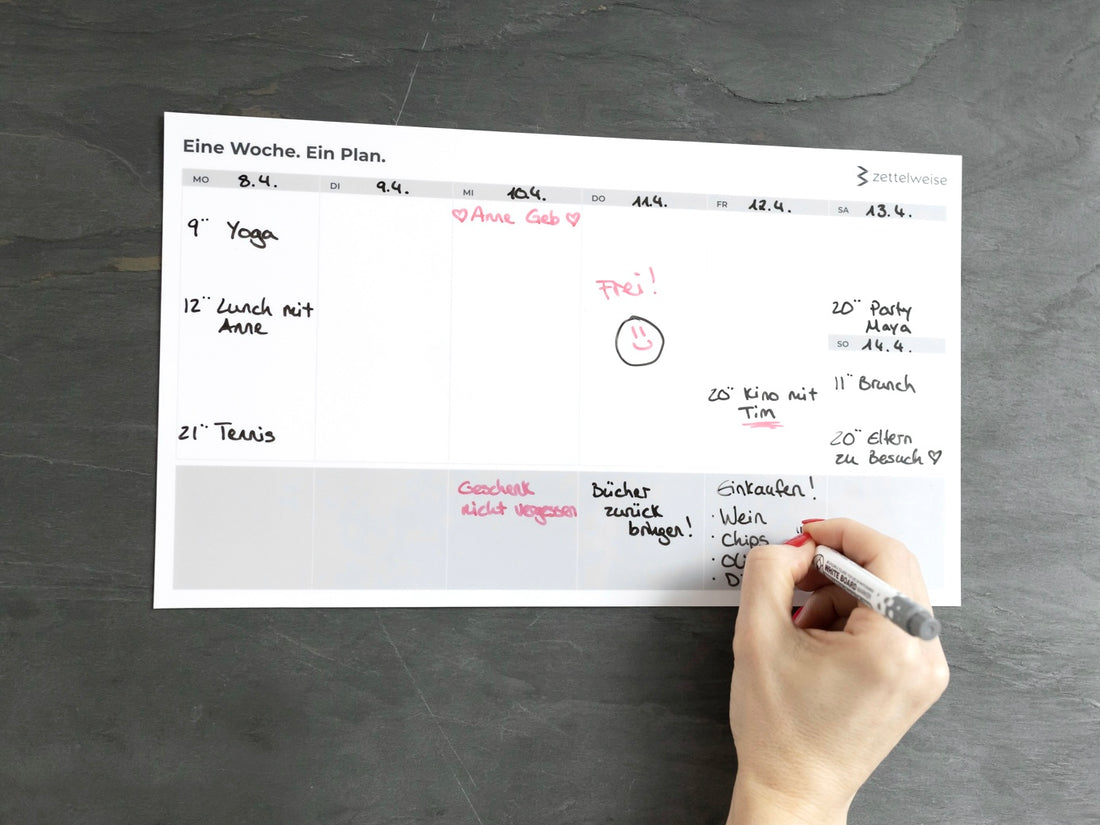 Eine Woche. Ein Plan.
zettelweise
MO 8.4.
DI 9.4.
MI 10.4.
DO 11.4.
FR 12.4.
SA 13.4.
9°° Yoga
12°° Lunch mit
Anne
21°° Tennis
♡ Anne Geb ♡
Geschenk
nicht vergessen
Frei!
Bücher
zurück
bringen!
20°° Kino mit
Tim
Einkaufen!
· Wein
· Chips
20°° Party
Maya
SO 14.4.
11°° Brunch
20°° Eltern
zu Besuch ♡
WHITE BOARD